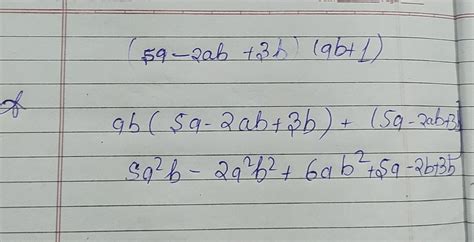 (5a-2ab+3b) (ab+1)
ab(5a-2ab+3b)+(5a-2ab+3
5a²b-2a²b²+6ab²+5a-2b+3b